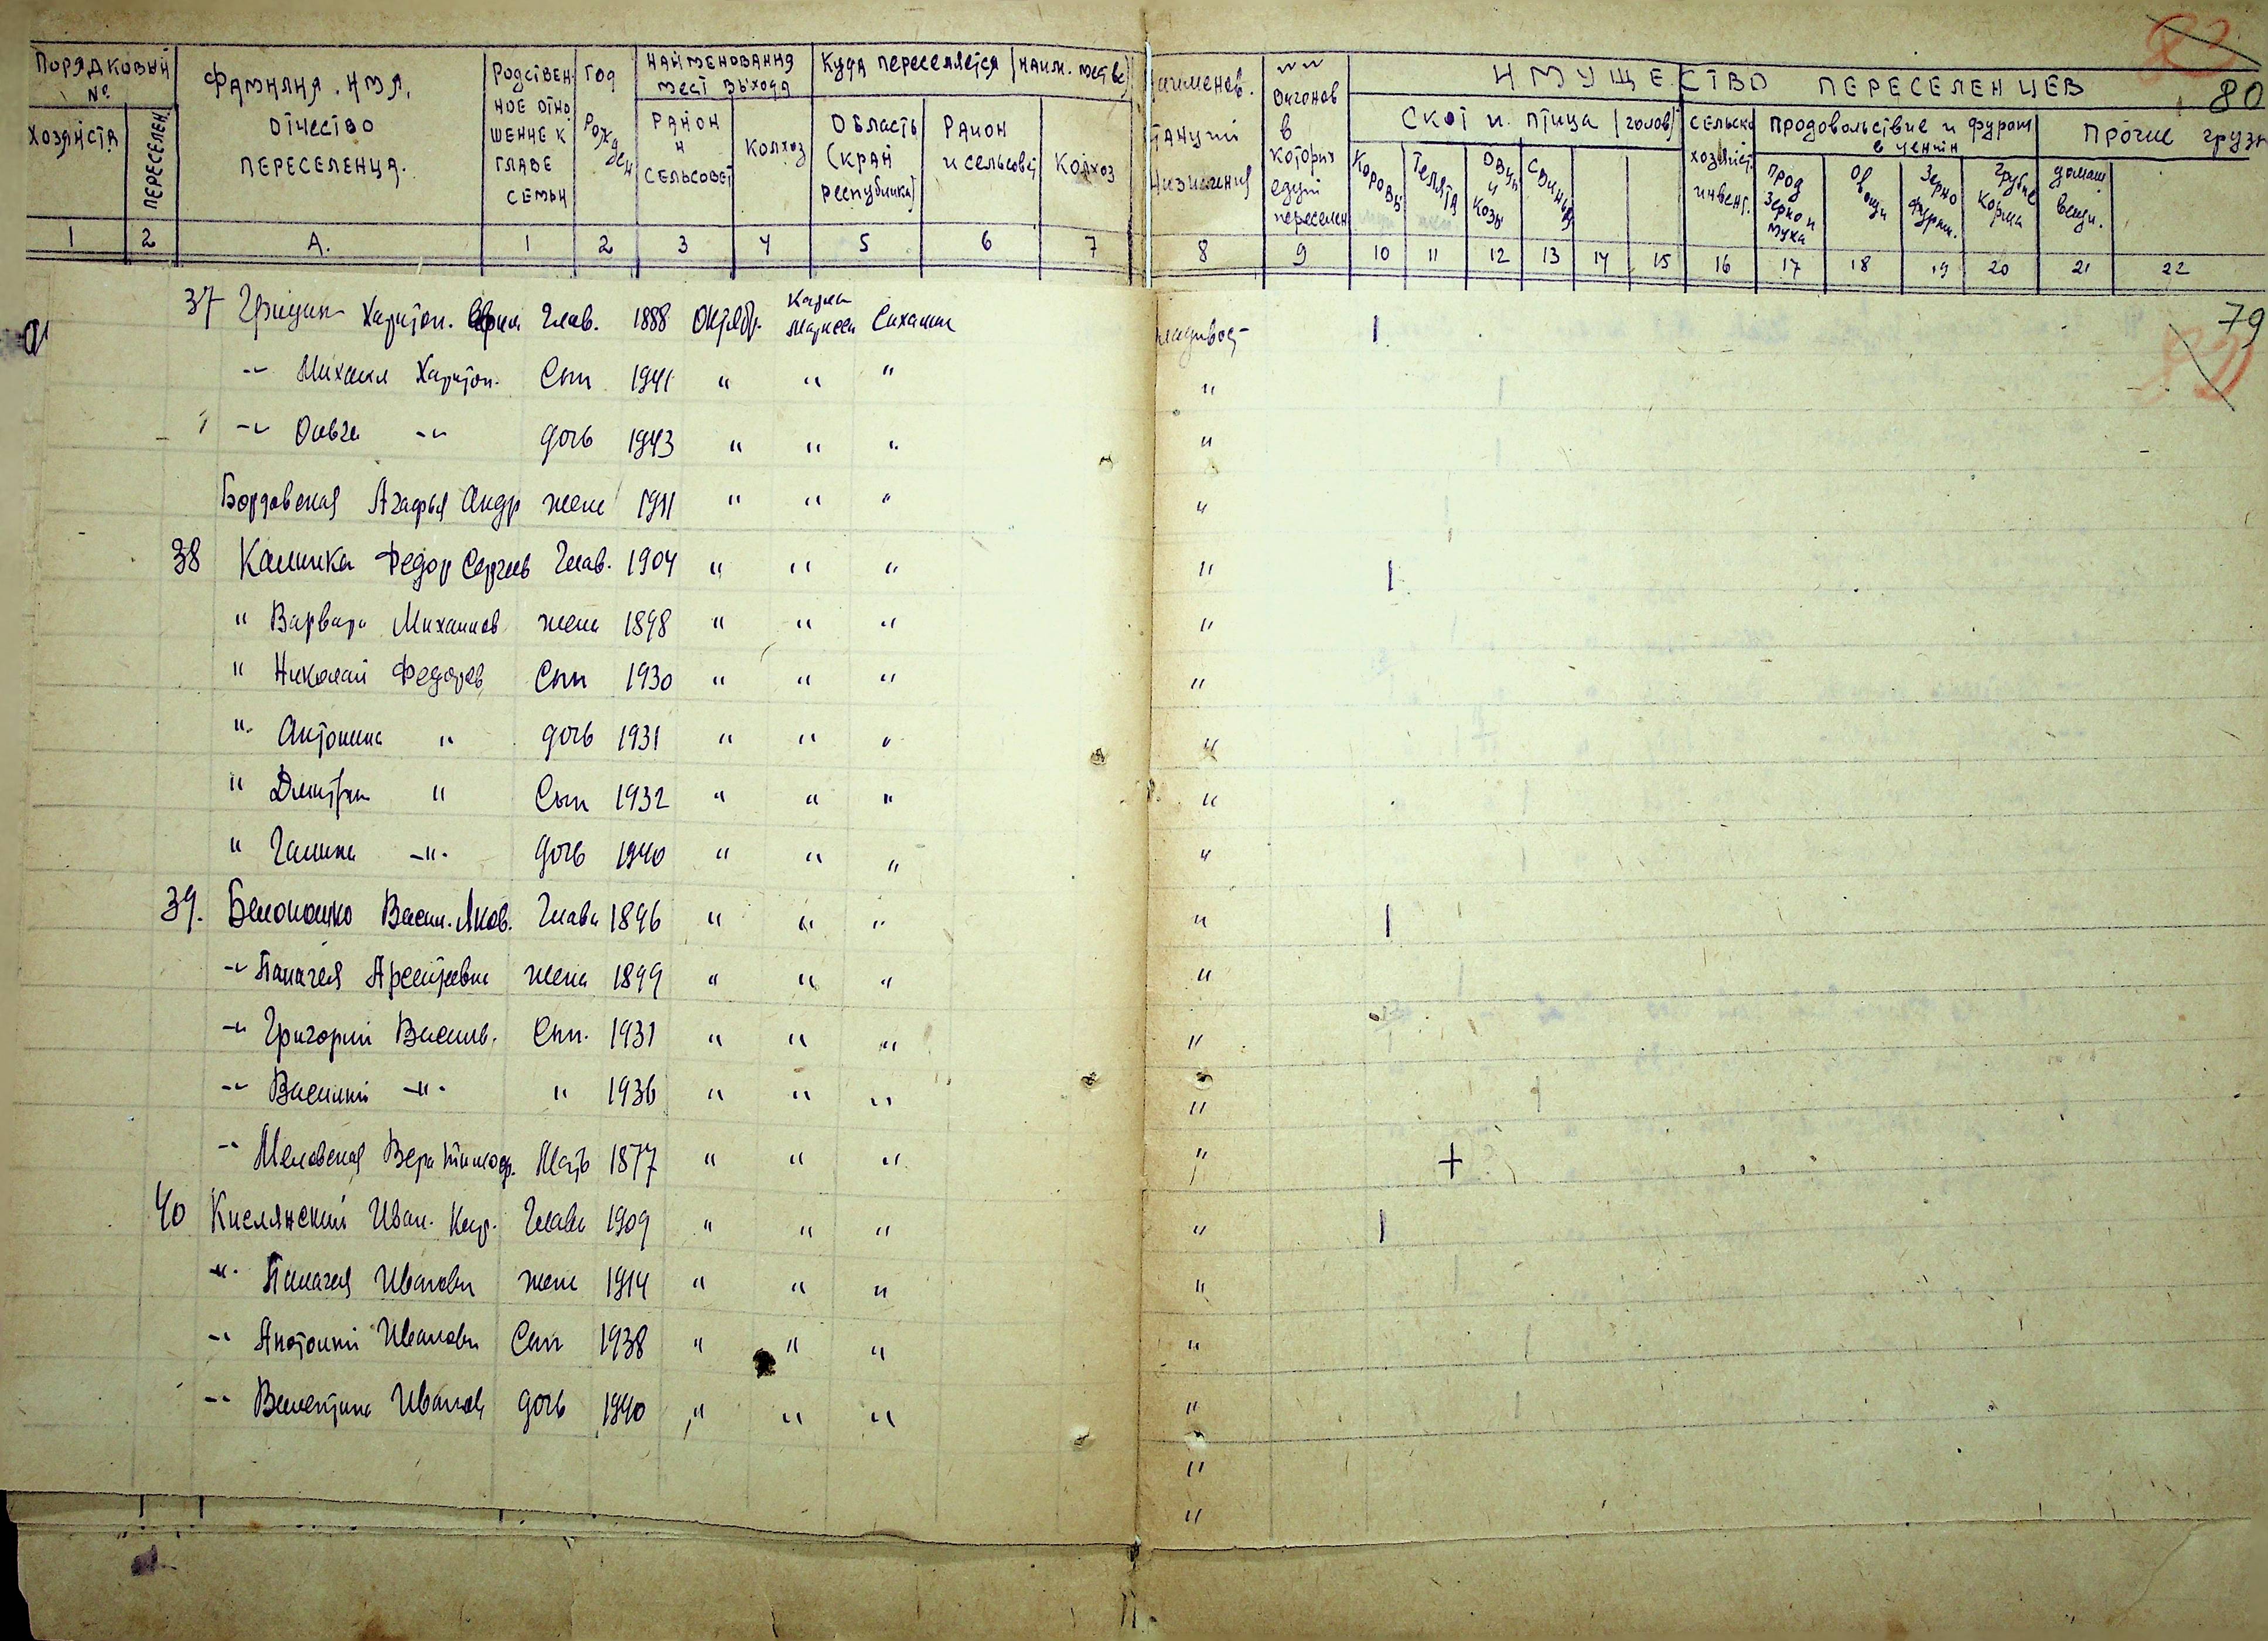 Порядковый №
Хозяйств
Переселен.
Фамилия. Имя, отчество переселенца.
Родствен-ное отно-шение к главе семьи
Год рожден
Наименования мест выхода
Район и сельсовет
Колхоз
Куда переселяется (наим. места)
Область (край республика)
Район и сельсовет
Колхоз
Наименов. станции назначения
№№ вагонов в которых едут переселен
Имущество переселенцев
Скот и птица (голов)
Коровы
Телята
Овцы и козы
Свиньи
Сельско хозяйст. инвент.
Продовольствие и фураж в центн
Прод зерно и мука
Овощи
Зерно фураж.
Грубые корма
Прочие грузы
домаш вещи.
80
1 2 А. 1 2 3 4 5 6 7 8 9 10 11 12 13 14 15 16 17 18 19 20 21 22
79
37 Грицин Харитон. Глав. 1888 Октябр. Карла Маркса Сахалин Владивос- 1
-"- Михаил Харитон. Сын 1941 " " " "
-"- Ольга -"- дочь 1943 " " " "
Бордовская Агафья Андр жена 1911 " " " "
38 Калинка Федор Сергеев Глав. 1904 " " " " 1
" Варвара Михайлов жена 1898 " " " "
" Николай Федоров Сын 1930 " " " "
" Антонина " дочь 1931 " " " "
" Дмитрий " Сын 1932 " " " "
" Галина -"- дочь 1940 " " " "
39. Белоконько Васил. Яков. Глава 1896 " " " " 1
-"- Палагея жена 1899 " " " "
-"- Григорий Василь. Сын. 1931 " " " "
-"- Василий -"- " 1936 " " " "
-"- Вера Тимоф. Мать 1877 " " " " +
40 Кислянский Иван. Глава 1909 " " " " 1
-"- Палагея Иванови жена 1914 " " " "
-"- Анатолий Иванови Сын 1938 " " " "
-"- Валентина Иванов дочь 1940 " " " "
"
"